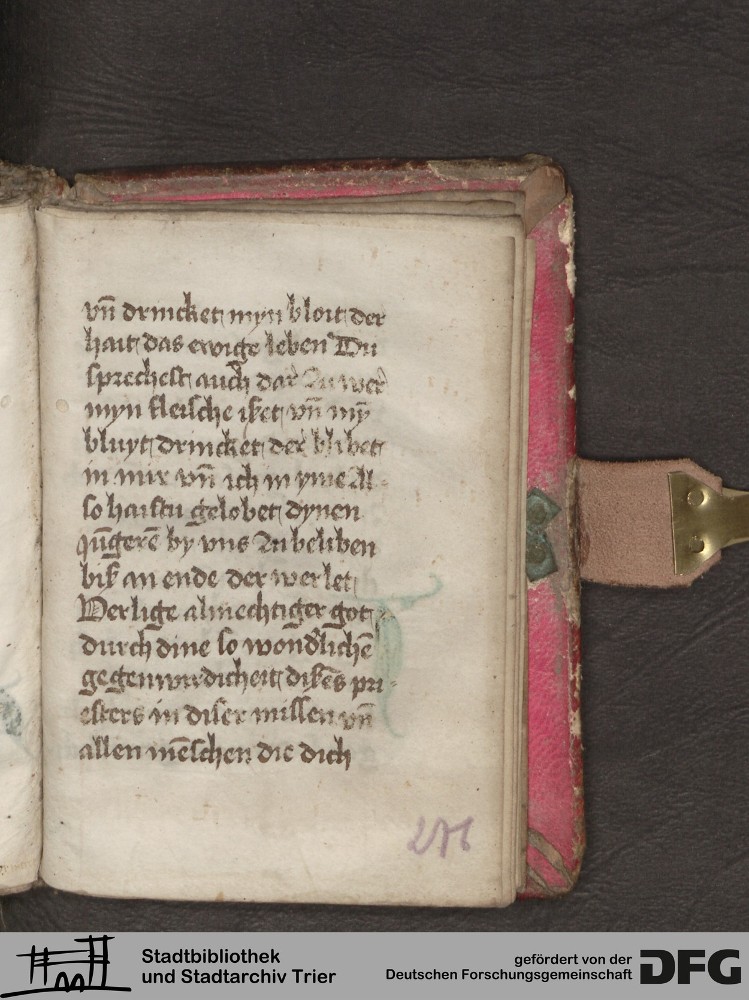 vn̄ drincket myn bloit der
hait das ewige leben Du
sprechest auch dar zu wer
myn fleische isset vn̄ mȳ
bluyt drincket der blibet
in mir vn̄ ich in yme Al-
so haistu gelobet dynen
jūgerē by vns zu beliben
biß an ende der werlet
Verlige almechtiger got
durch dine so wondlichē
gegenwirdicheit dißēs pri-
esters in diser missen vn̄
allen mēschen die dich
276
Stadtbibliothek
und Stadtarchiv Trier
gefördert von der
Deutschen Forschungsgemeinschaft
DFG